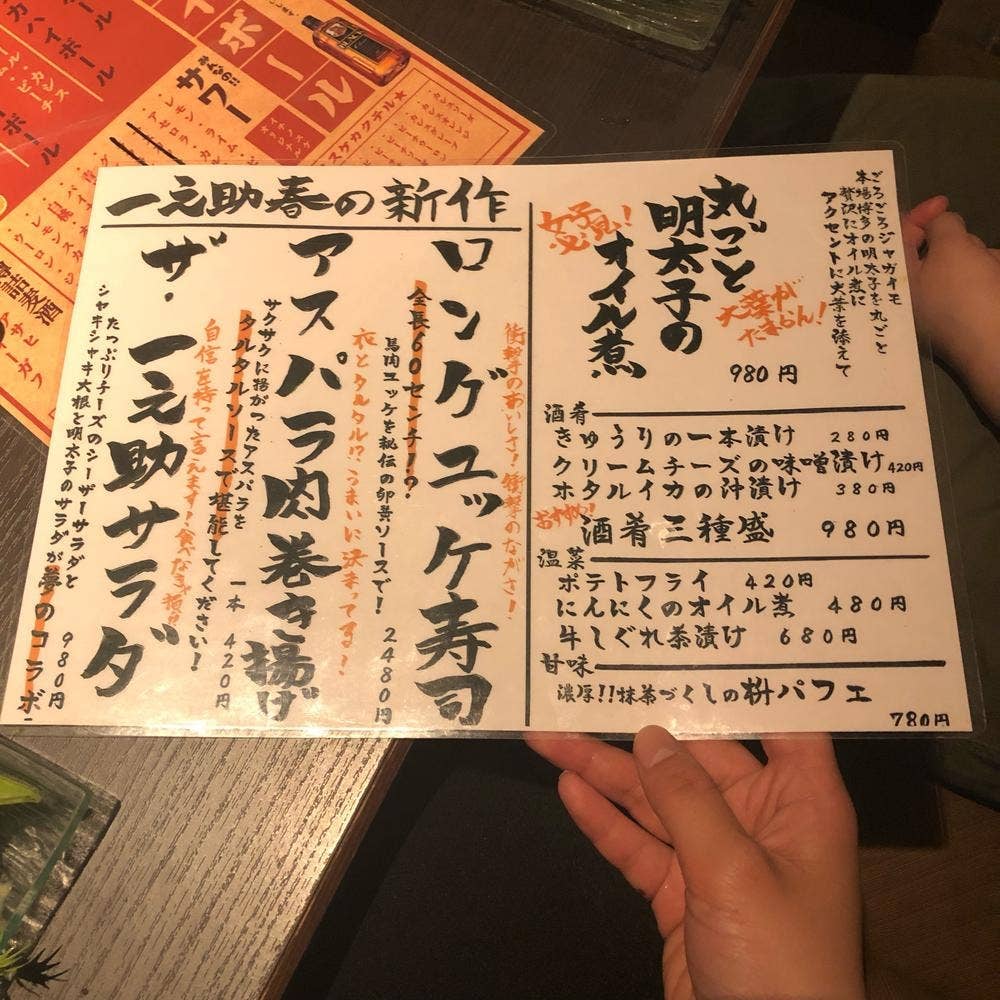 一之助春の新作
ロングユッケ寿司
衝撃のおいしさ!衝撃のながさ!
全長60センチ!?
馬肉ユッケを秘伝の卵黄ソースで!
2480円
アスパラ肉巻き揚げ
衣とタルタル!?うまいに決まってる!
サクサクに揚がったアスパラを
タルタルソースで堪能してください!
一本 420円
自信を持って言えます!食べなきゃ損!!
ザ・一之助サラダ
たっぷりチーズのシーザーサラダと
シャキシャキ大根と明太子のサラダが夢のコラボ
980円
ごろごろジャガイモ
本場博多の明太子を丸ごと
贅沢にオイル煮に
アクセントに大葉を添えて
丸ごと
明太子の
オイル煮
女子必見!
大葉が
たまらん!
980円
酒肴
きゅうりの一本漬け 280円
クリームチーズの味噌漬け 420円
ホタルイカの沖漬け 380円
おすすめ!
酒肴三種盛 980円
温菜
ポテトフライ 420円
にんにくのオイル煮 480円
牛しぐれ茶漬け 680円
甘味
濃厚!!抹茶づくしの枡パフェ
780円
ボール
みんなの!!
サワー
カクテル★
レモン
ライム
詰麦酒
アサヒ
ハイボール